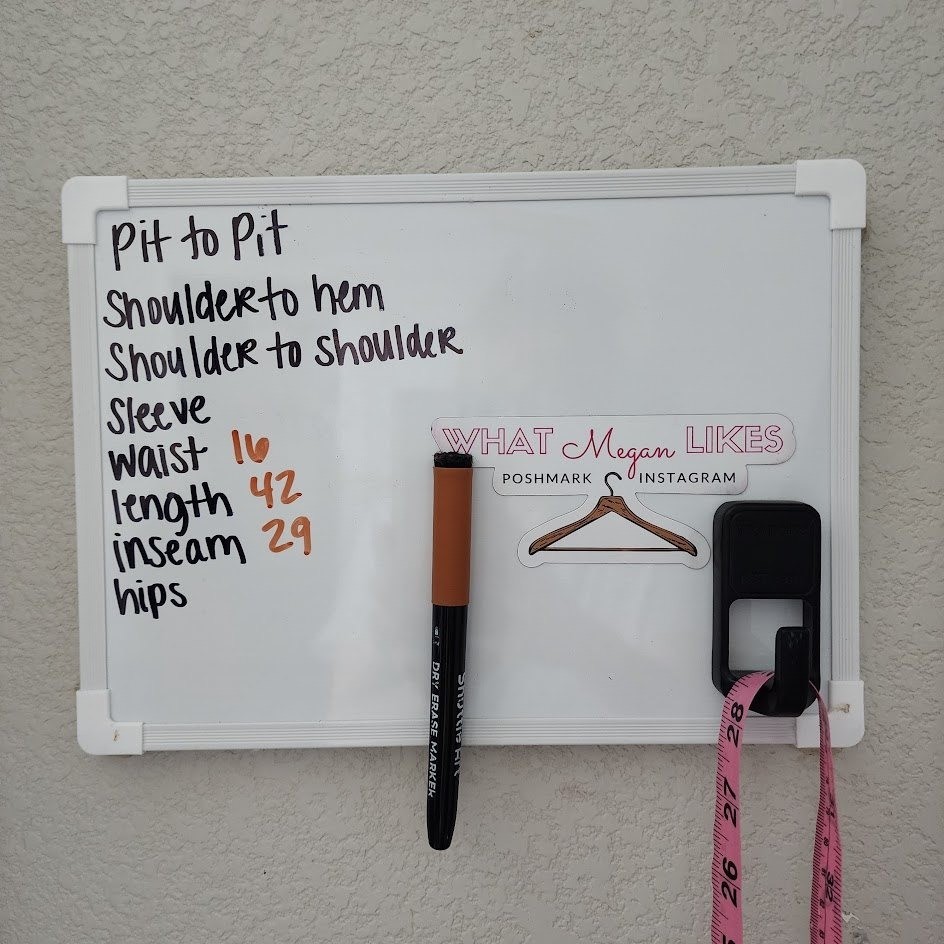 Pit to Pit
Shoulder to hem
Shoulder to shoulder
Sleeve
waist 16
length 42
inseam 29
hips
WHAT Megan LIKES
POSHMARK INSTAGRAM
DRY ERASE MARKER
28
27
26
32